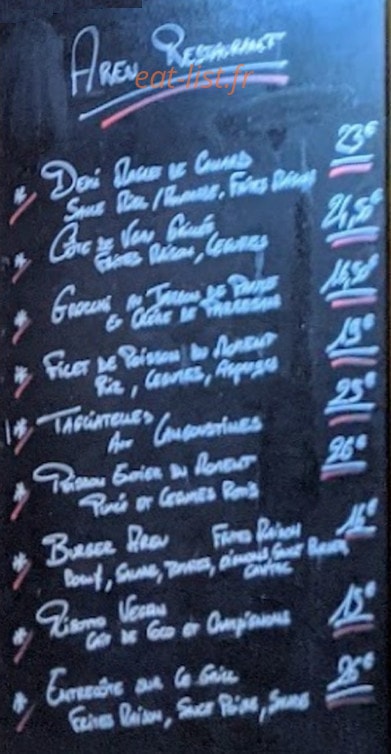 Aren Restaurant
eat-list.fr
* Demi Magret de Canard 23€
Sauce Miel / , Frites Maison
* Côte de Veau 24,50€
Frites Maison, Légumes
* Gnocchi au Jambon de Parme
& Crème de Parmesan
* Filet de Poisson du Moment 19€
Riz, Légumes,
* Tagliatelles 25€
Aux Langoustines
* Poisson Entier du Moment 26€
Purée et Légumes Rotis
* Burger Aren Frites Maison 16€
Boeuf, Salade, Tomates, Oignons Sauce Burger
Cantal
* Risotto Vegan 15€
Lait de Coco et Champignons
* Entrecôte sur le Grill 26€
Frites Maison, Sauce Poivre, Salade